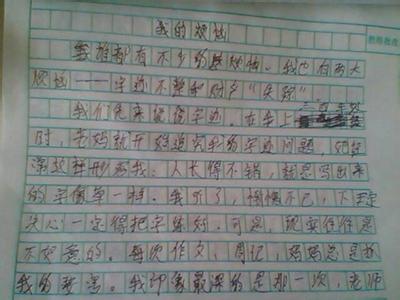 我的烦恼
谁都有不少的烦恼。我也有两大
烦恼——字迹不整和“失踪”
我们先来说说字迹。在上三年级
时，老妈就开始追究我的字迹问题，她曾
形容我：人长得不错，就怎写出来
的字像草一样。我听了，惭愧不已，下定
决心一定得把字练好。可是，现实往往是
不如意的。每次作文，周记，妈妈总是
我的。我印象最深的是那一次，老师